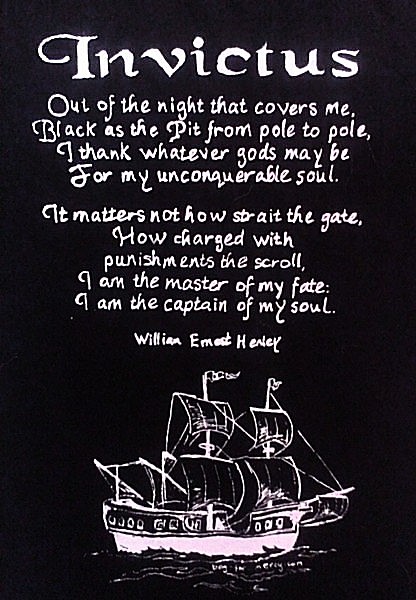 Invictus
Out of the night that covers me,
Black as the Pit from pole to pole,
I thank whatever gods may be
For my unconquerable soul.
It matters not how strait the gate,
How charged with
punishments the scroll,
I am the master of my fate:
I am the captain of my soul.
Willian Ernest Henley